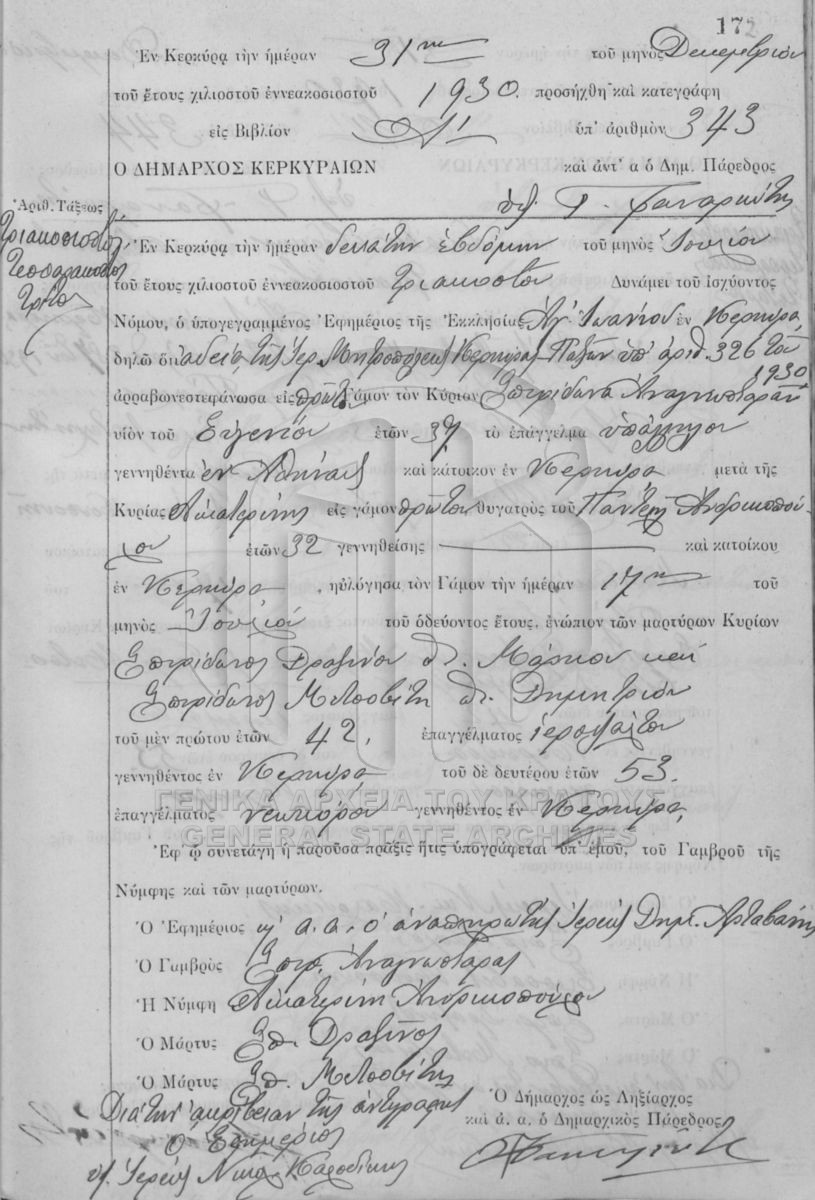 172
Ἐν Κερκύρᾳ τὴν ἡμέραν 31ην τοῦ μηνὸς Δεκεμβρίου
τοῦ ἔτους χιλιοστοῦ ἐννεακοσιοστοῦ 1930. προσήχθη καὶ κατεγράφη
εἰς Βιβλίον Α' ὑπ' ἀριθμὸν 343
Ο ΔΗΜΑΡΧΟΣ ΚΕΡΚΥΡΑΙΩΝ καὶ ἀντ' α ὁ Δημ. Πάρεδρος
Ἀριθ. Τάξεως
Τριακοσιοστὸς
Τεσσαρακοστὸς
Τρίτος
Ἐν Κερκύρᾳ τὴν ἡμέραν δεκάτην ἑβδόμην τοῦ μηνὸς Ἰουλίου
τοῦ ἔτους χιλιοστοῦ ἐννεακοσιοστοῦ τριακοστοῦ Δυνάμει τοῦ ἰσχύοντος
Νόμου, ὁ ὑπογεγραμμένος Ἐφημέριος τῆς Ἐκκλησίας Ἁγ. Ἰωάννου ἐν Κερκύρᾳ
δηλῶ ὅτι ἀδείᾳ τῆς Ἱερ. Μητροπόλεως Κερκύρας Παξῶν ὑπ' ἀριθ. 326 τοῦ
1930
ἀρραβωνεστεφάνωσα εἰς πρῶτον Γάμον τὸν Κύριον Σπυρίδωνα Ἀναγνωσταρᾶν
υἱὸν τοῦ Εὐγενίου ἐτῶν 37 τὸ ἐπάγγελμα ὑπάλληλον
γεννηθέντα ἐν Ἀθήναις καὶ κάτοικον ἐν Κερκύρᾳ μετὰ τῆς
Κυρίας Αἰκατερίνης εἰς γάμον πρῶτον θυγατρὸς τοῦ Παντελῆ Ἀνδρικοπού-
λου ἐτῶν 32 γεννηθείσης καὶ κατοίκου
ἐν Κερκύρᾳ, ηὐλόγησα τὸν Γάμον τὴν ἡμέραν 17ην τοῦ
μηνὸς Ἰουλίου τοῦ ὁδεύοντος ἔτους, ἐνώπιον τῶν μαρτύρων Κυρίων
Σπυρίδωνος Δραζίνου π. Μάρκου καὶ
Σπυρίδωνος π. Δημητρίου
τοῦ μὲν πρώτου ἐτῶν 42, ἐπαγγέλματος ἱεροψάλτου
γεννηθέντος ἐν Κερκύρᾳ τοῦ δὲ δευτέρου ἐτῶν 53.
ἐπαγγέλματος νεωκόρου γεννηθέντος ἐν Κερκύρᾳ
ΓΕΝΙΚΑ ΑΡΧΕΙΑ ΤΟΥ ΚΡΑΤΟΥΣ
GENERAL STATE ARCHIVES
Ἐφ' ᾧ συνετάγη ἡ παροῦσα πρᾶξις ἥτις ὑπογράφεται ὑπ' ἐμοῦ, τοῦ Γαμβροῦ τῆς
Νύμφης καὶ τῶν μαρτύρων.
Ὁ Ἐφημέριος κ' α. α. ὁ ἀναπληρωτὴς Ἱερεὺς Δημ. Ἀρταβάνης
Ὁ Γαμβρὸς Σπ. Ἀναγνωσταρᾶς
Ἡ Νύμφη Αἰκατερίνη Ἀνδρικοπούλου
Ὁ Μάρτυς Σπ. Δραζῖνος
Ὁ Μάρτυς Σπ.
Διὰ τὴν ἀκρίβειαν τῆς ἀντιγραφῆς
Ὁ Ἐφημέριος
Ἱερεὺς Νικόλ.
Ὁ Δήμαρχος ὡς Ληξίαρχος
καὶ ἀ. α. ὁ Δημαρχικὸς Πάρεδρος